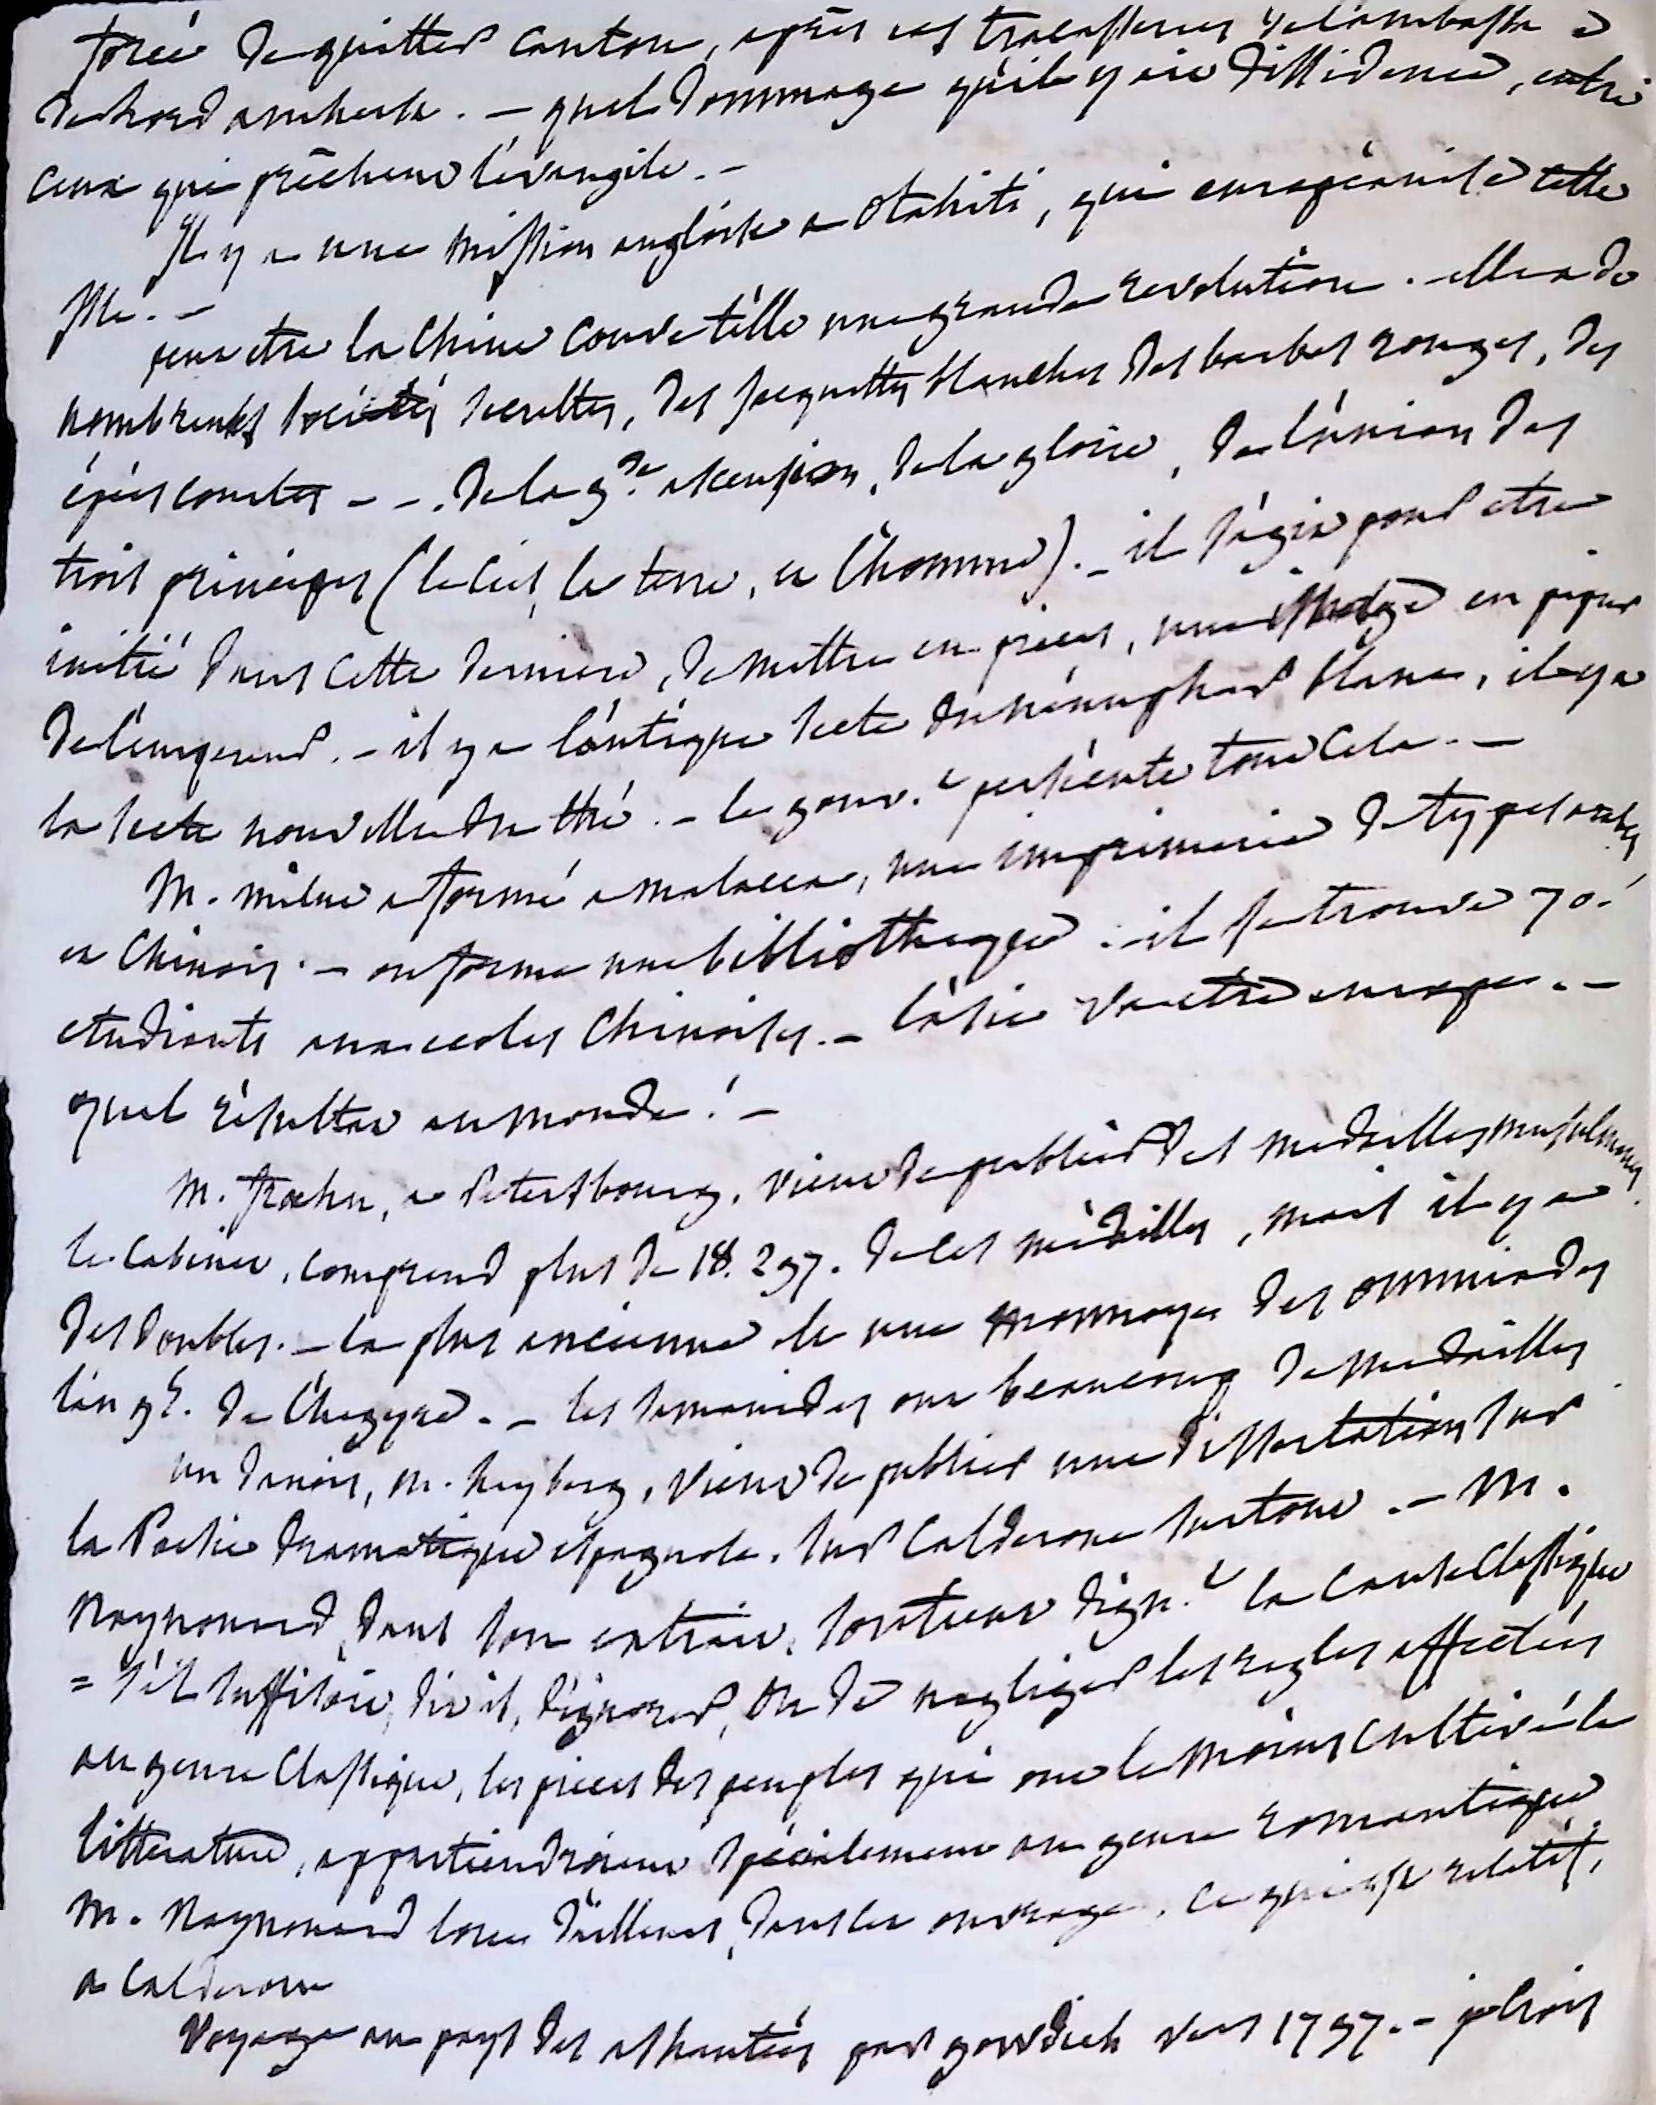 forcé de quitter canton, après les tracasseries de l'ambassade
de Lord amherst. — quel dommage qu'il y ait dissidence, entre
ceux qui prêchent l'évangile. —
Il y a une mission anglaise a Otahiti, qui européanise cette
Isle. —
peut etre la Chine couve t'elle une grande revolution. — elle a de
nombreuses sociétés secrettes, des jacquettes blanches des barbes rouges, des
épées courtes - - . de la gde ascension, de la gloire, de l'union des
trois principes (le ciel, la terre, et l'homme). — il s'agit pour etre
initié dans cette derniere, de mettre en pieces, une en papier
de l'empereur. — il y a l'antique secte du nénuphar blanc, il y a
la secte nouvelle du thé. — le gouvt persécute tout cela. —
M. milne a formé a malacca, une imprimerie de types arabes
et Chinois. — on forme une bibliotheque. — il se trouve 70.
etudiants aux ecoles Chinoises. — l'asie va etre europe. —
quel résultat au monde! —
M. fraehn, a Petersbourg, vient de publier des medailles musulmanes.
le cabinet, comprend plus de 18.297. de ces médailles, mais il y a
des doubles. — la plus ancienne est une monnaye des ommiades
l'an 79. de l'hegyre. — les samanides ont beaucoup de medailles
un danois, m. heyberg, vient de publier une dissertation sur
la Poesie dramatique espagnole. sur Calderone surtout. — M.
Raynouard, dans son extrait, soutient dignt la cause classique
= s'il suffisait, dit il, d'ignorer, ou de negliger les regles affectées
au genre classique, les pieces des peuples qui ont le moins cultivé la
litterature, appartiendraient spécialement au genre romantique.
M. Raynouard loue d'ailleurs, dans cet ouvrage, ce qui est relatif,
a Calderone
Voyage au pays des ashantées par bowdich vers 1797. — je crois